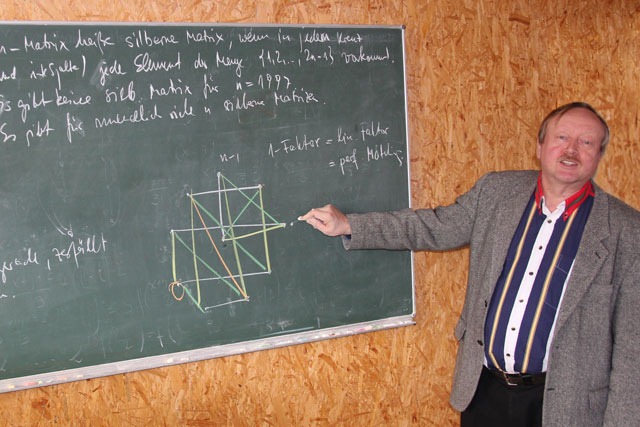 n-Matrix heiße silberne Matrix, wenn in jedem Kreuz
jede Element der Menge {1,2,...,2n-1} vorkommt.
es gibt keine silb. Matrix für n = 1997.
Es gibt für unendlich viele n silberne Matrizen.
n-1
1-Faktor = lin. Faktor
= perf. Matching
gerade, zerfällt